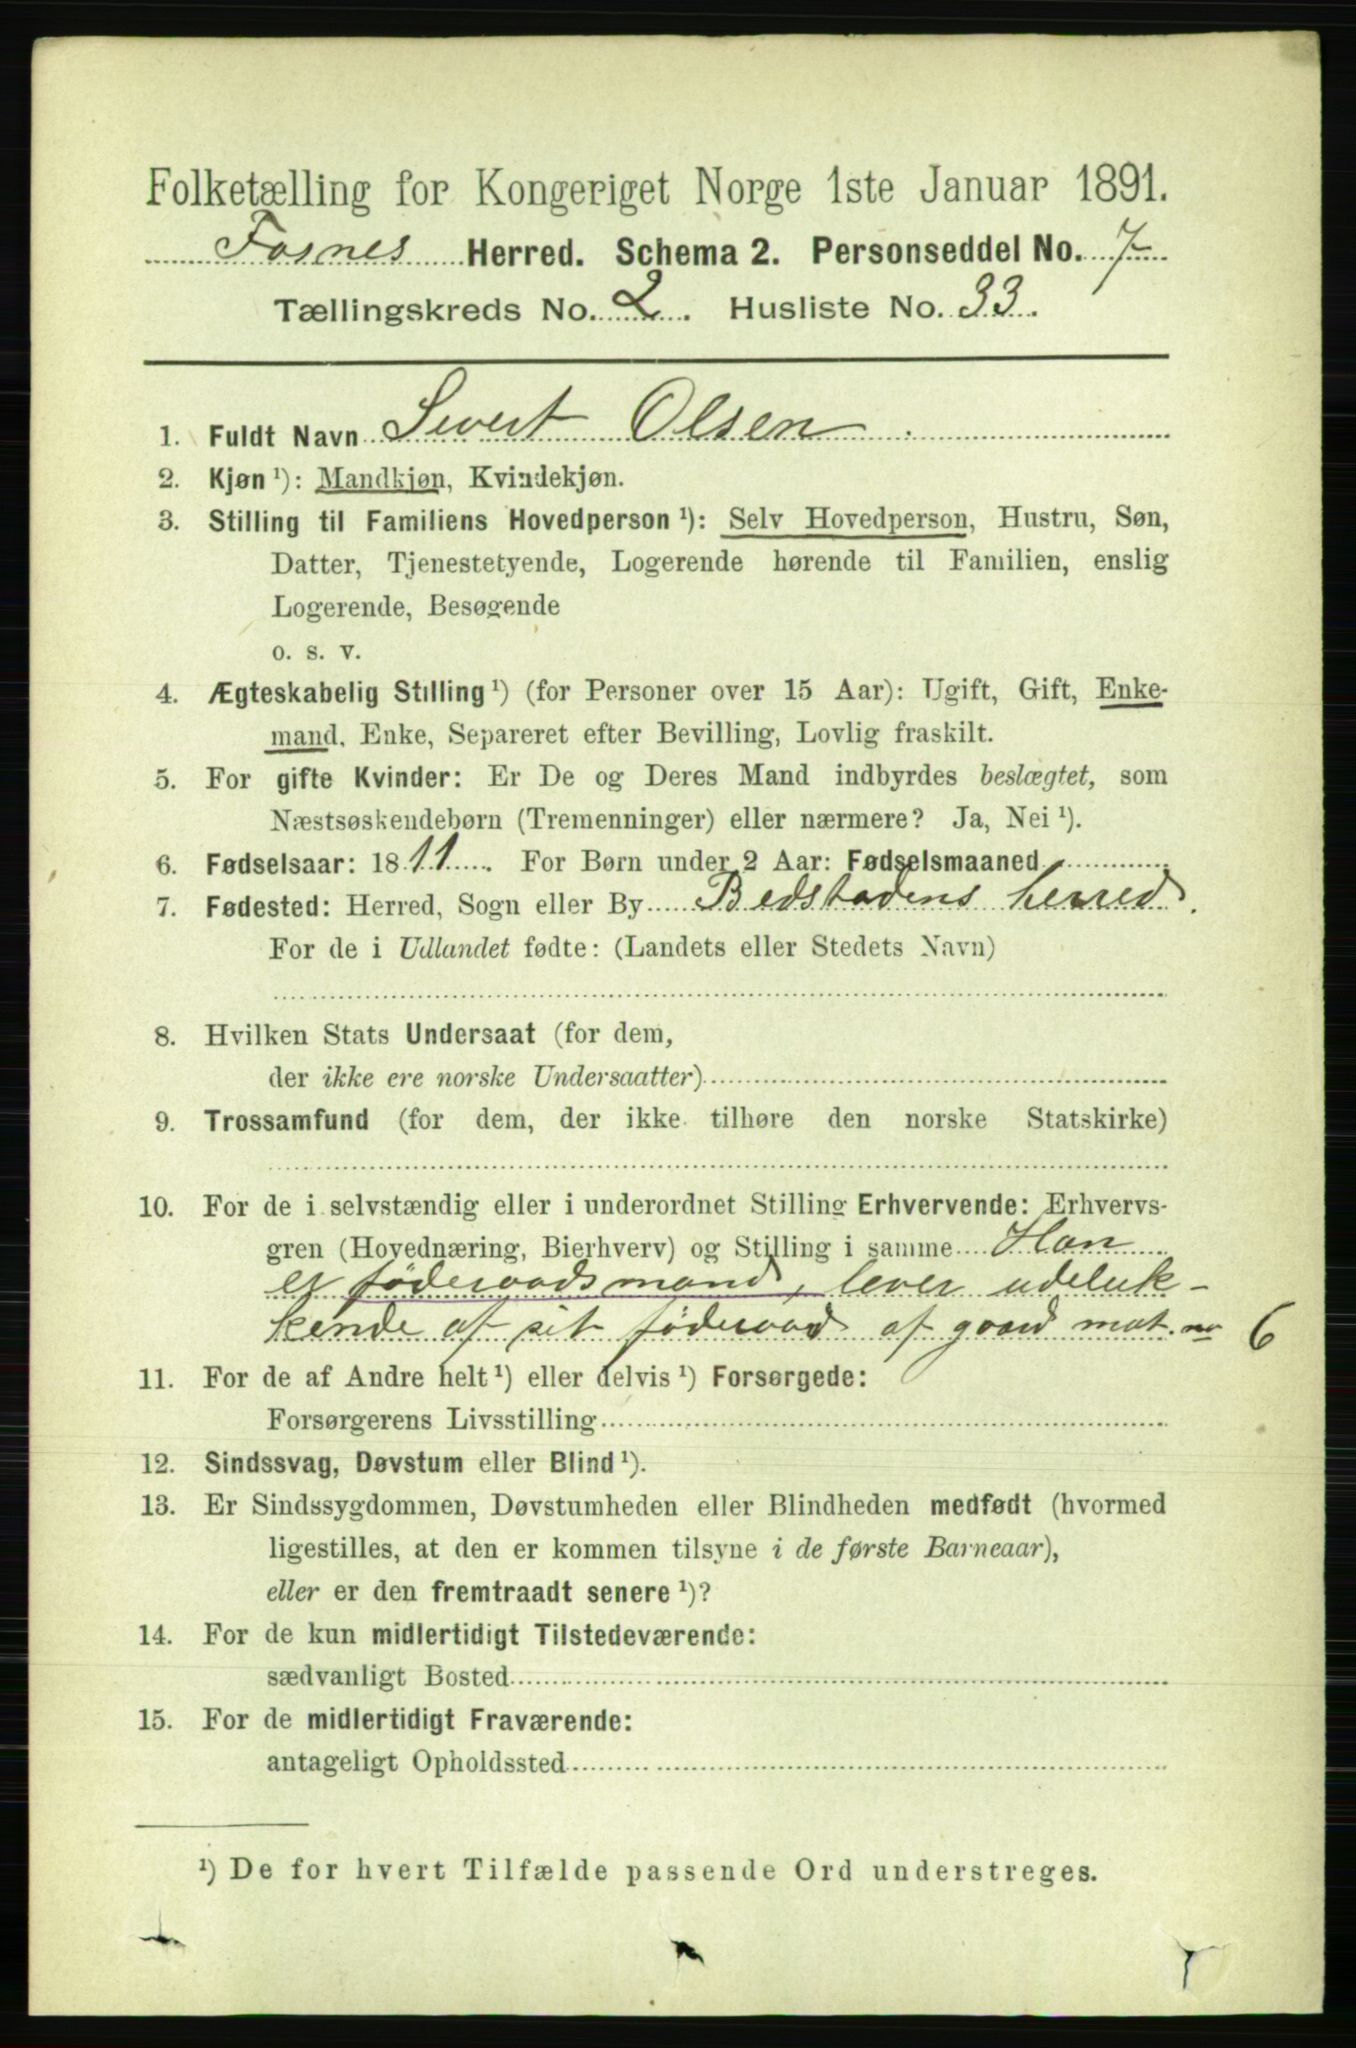 Folketælling for Kongeriget Norge 1ste Januar 1891.
Fosnes Herred. Schema 2. Personseddel No. 7
Tællingskreds No. 2. Husliste No. 33.
1. Fuldt Navn Sivert Olsen
2. Kjøn ¹): Mandkjøn, Kvindekjøn.
3. Stilling til Familiens Hovedperson ¹): Selv Hovedperson, Hustru, Søn,
Datter, Tjenestetyende, Logerende hørende til Familien, enslig
Logerende, Besøgende
o. s. v.
4. Ægteskabelig Stilling ¹) (for Personer over 15 Aar): Ugift, Gift, Enke-
mand, Enke, Separeret efter Bevilling, Lovlig fraskilt.
5. For gifte Kvinder: Er De og Deres Mand indbyrdes beslægtet, som
Næstsøskendebørn (Tremenninger) eller nærmere? Ja, Nei ¹).
6. Fødselsaar: 1811. For Børn under 2 Aar: Fødselsmaaned
7. Fødested: Herred, Sogn eller By Bedstadens herred.
For de i Udlandet fødte: (Landets eller Stedets Navn)
8. Hvilken Stats Undersaat (for dem,
der ikke ere norske Undersaatter)
9. Trossamfund (for dem, der ikke tilhøre den norske Statskirke)
10. For de i selvstændig eller i underordnet Stilling Erhvervende: Erhvervs-
gren (Hovednæring, Bierhverv) og Stilling i samme Han
er föderaadsmand, lever udeluk-
kende af sit föderaad af gaard mat. no 6
11. For de af Andre helt ¹) eller delvis ¹) Forsørgede:
Forsørgerens Livsstilling
12. Sindssvag, Døvstum eller Blind ¹).
13. Er Sindssygdommen, Døvstumheden eller Blindheden medfødt (hvormed
ligestilles, at den er kommen tilsyne i de første Barneaar),
eller er den fremtraadt senere ¹)?
14. For de kun midlertidigt Tilstedeværende:
sædvanligt Bosted
15. For de midlertidigt Fraværende:
antageligt Opholdssted
¹) De for hvert Tilfælde passende Ord understreges.